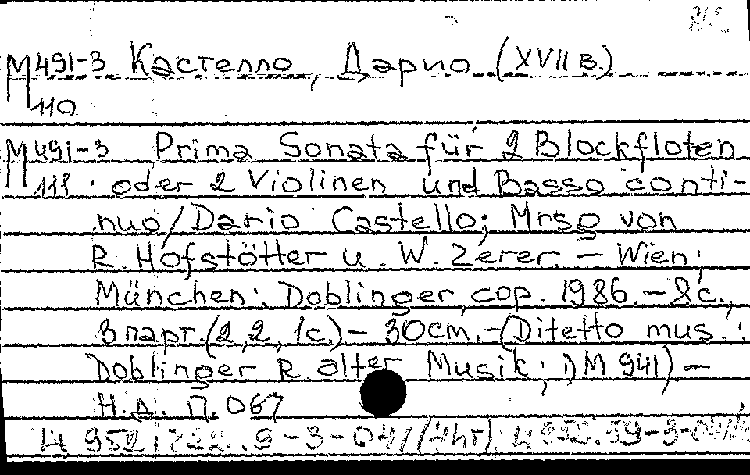 М491-3 Кастелло, Дарио (XVII в.)
110
М491-3 Prima Sonata für 2 Blockfloten
111 oder 2 Violinen und Basso conti-
nuo / Dario Castello; Hrsg von
R. Hofstötter u. W. Zerer. – Wien;
München: Doblinger, cop. 1986. – 8 с.,
3 парт. (2, 2, 1 с.) – 30cm. – (Diletto mus.:
Doblinger R. alter Musik; DM 941) –
Н.д. П. 067